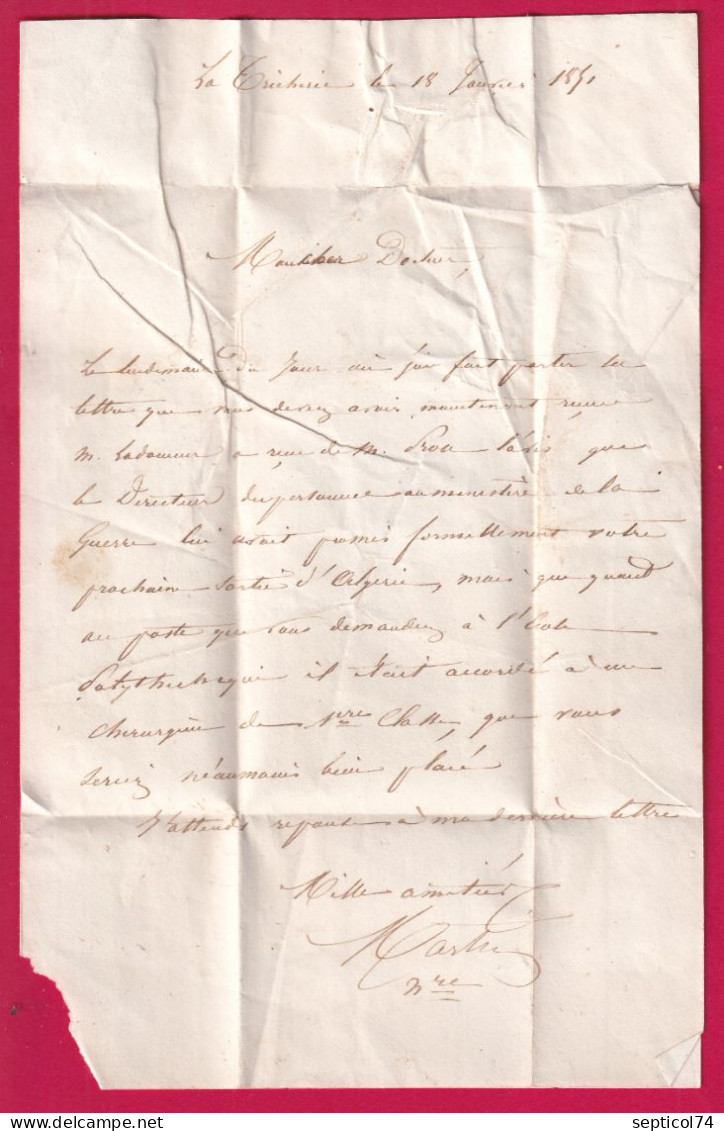 La Tricherie le 18 Janvier 1851
Mon cher Docteur,
Le lendemain du jour où j'ai fait partir la
lettre que vous devez avoir maintenant reçue
M. Ladoumer a reçu de M. Proa l'avis que
le Directeur du personnel au ministère de la
Guerre lui avait promis formellement votre
prochaine sortie d'Algérie, mais que quant
au poste que vous demandiez à l'École
Polythechnique il était accordé à un
chirurgien de 1ère Classe, que vous
seriez néanmoins bien placé
J'attends réponse à ma dernière lettre
Mille amitiés
Martin
Nre
septicol74